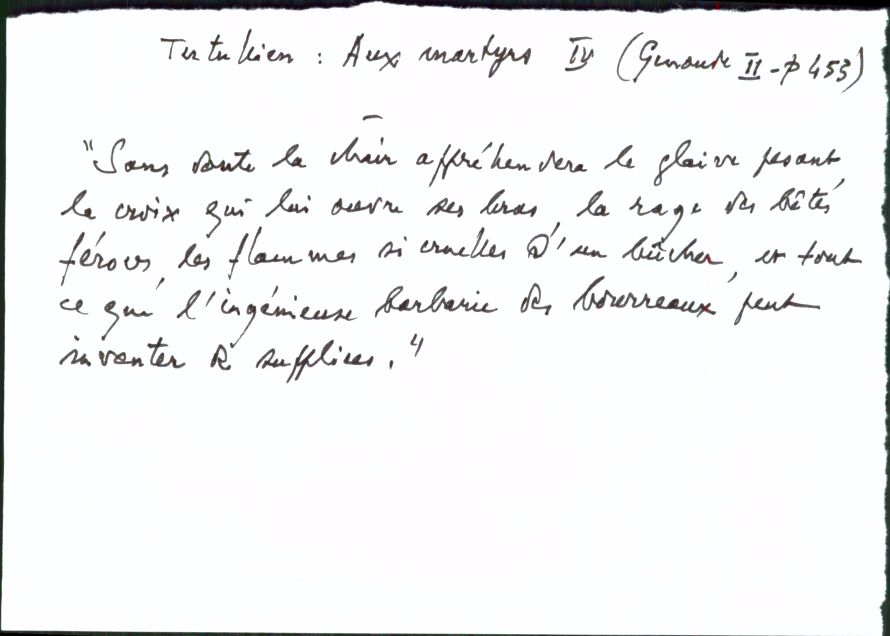 Tertullien : Aux martyrs IV (Genoude II - p 453)
"Sans doute la chair appréhendera le glaive pesant,
la croix qui lui ouvre ses bras, la rage des bêtes
féroces, les flammes si cruelles d'un bûcher, et tout
ce que l'ingénieuse barbarie des bourreaux peut
inventer de supplices."